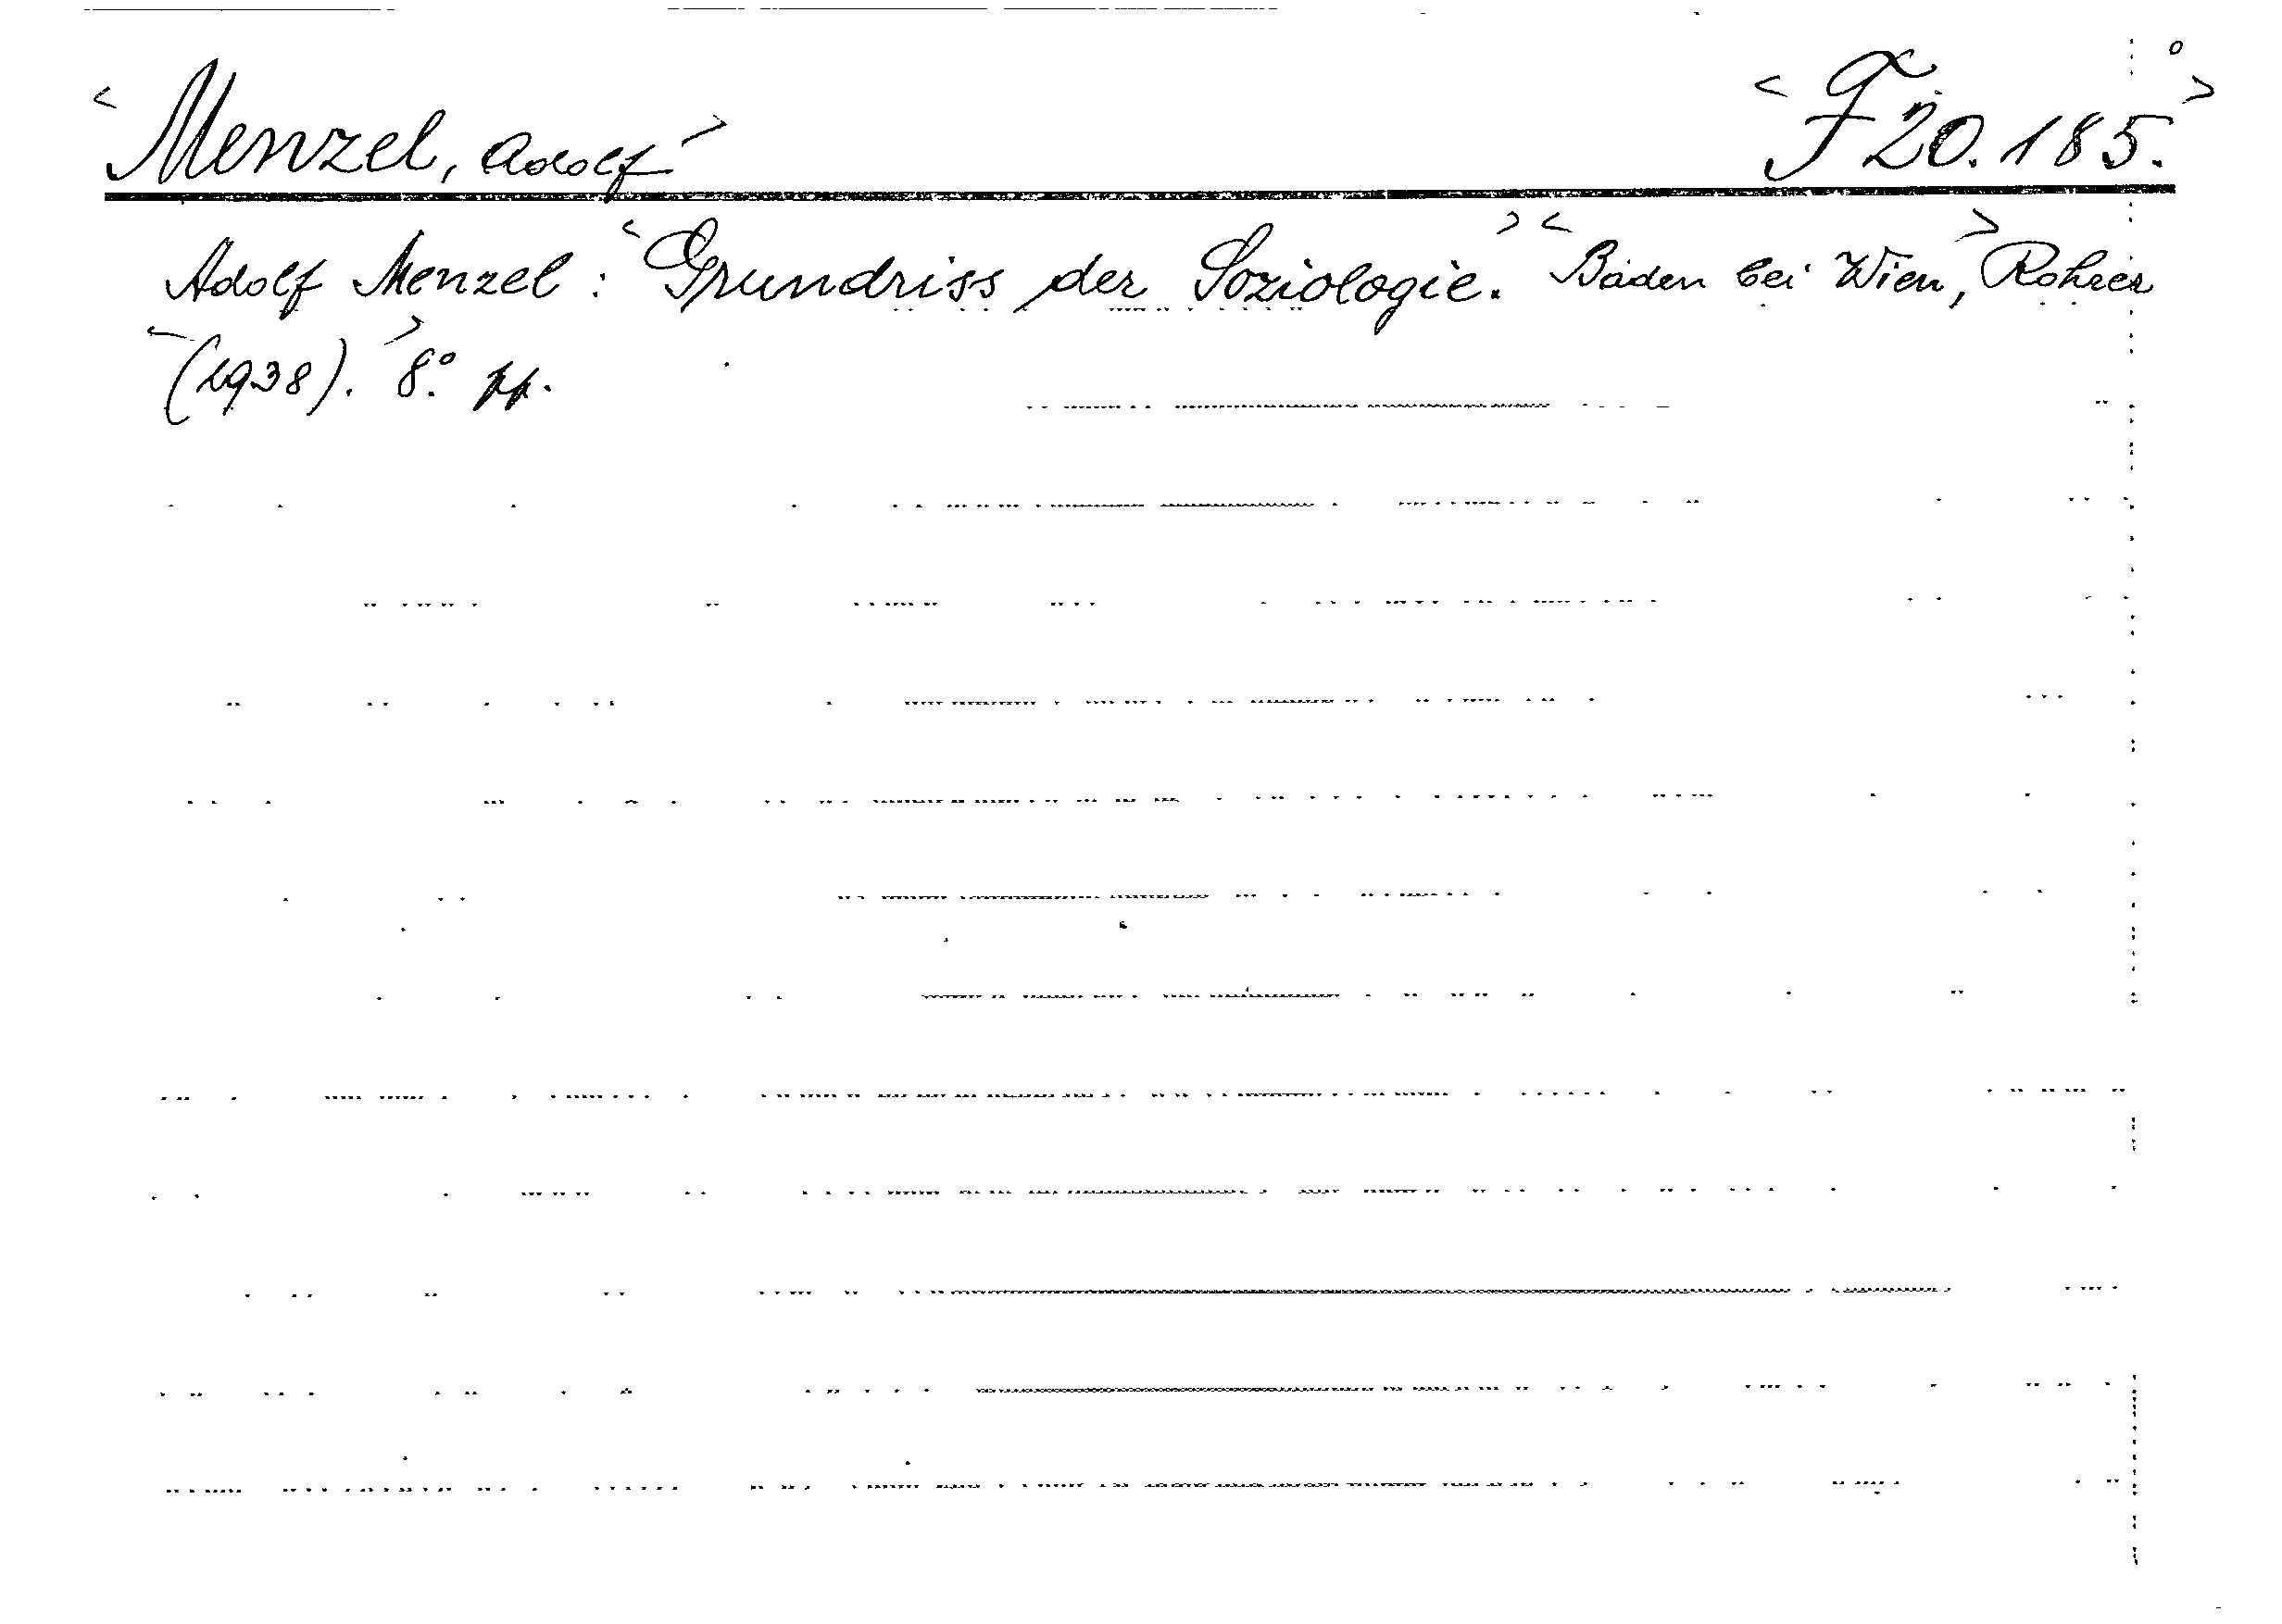 <Menzel, Adolf> <F 20.185.°>
Adolf Menzel: <Grundriss der Soziologie.> <Baden bei Wien,> Rohrer
<(1938).> 8.° pp.